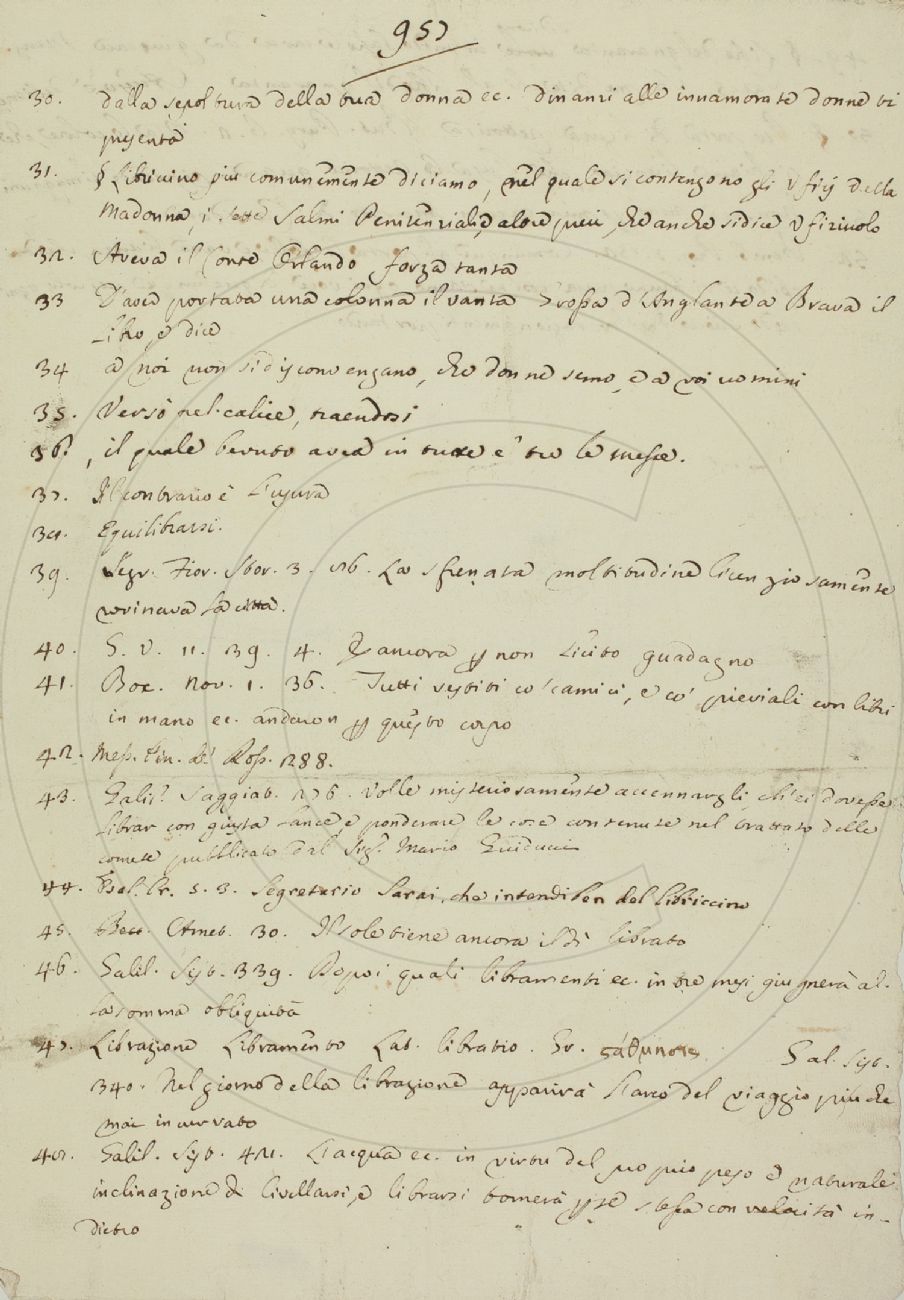 957
30. dalla sepoltura della tua donna ec. dinanzi alle innamorate donne ti
presenta
31. § Libricino più comunemente diciamo, nel quale si contengono gli Ufizj della
Madonna, i sette Salmi Penitenziali, e altre preci, che anche si dice Ufiziuolo
32. Aveva il Conte Orlando forza tanta
33 D'aver portata una colonna il vanta Grossa d'Anglante a Brava il
Libro, e dice
34 a noi non si disconvengano, che donne semo, e a voi uomini
35. Versò nel calice, traendosi
36. , il quale bevuto avea in tutte e tre le messe.
37. Il contrario è L'usura
38. Equilibrarsi.
39. Segr. Fior. Stor. 3. 76. La sfrenata moltitudine licenziosamente
rovinava la città.
40. G. V. 11. 39. 4. E ancora per non licito guadagno
41. Boc. Nov. 1. 36. Tutti vestiti co' camici, e co' pieviali con libri
in mano ec. andaron per questo corpo
42. Mess. Cin. Ross. 288.
43. Galil. Saggiat. 276. Volle misteriosamente accennargli, ch'ei dovesse
librar con giusta lance, e ponderare le cose contenute nel trattato delle
comete pubblicato dal Sig. Mario Guiducci
44. Bel. 5. 3. Segreterio Sarai, che intendi ben del libriccino
45. Amet. 30. Il sole tiene ancora il dì librato
46. Galil. Sist. 339. Dopo i quali libramenti ec. in tre mesi giugnerà al-
la somma obliquità
47. Librazione Libramento Lat. libratio. Gr. ςάθμησις Gal. Sist.
340. Nel giorno della librazione apparirà l'arco del viaggio più che
mai incurvato
48. Galil. Sist. 421. L'acqua ec. in virtù del suo proprio peso e naturale
inclinazione di livellarsi, e librarsi tornerà per se stessa con velocità in-
dietro